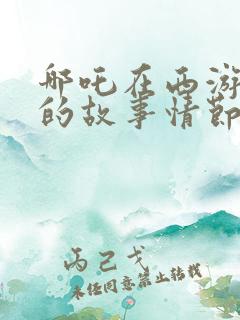 哪吒在西游
的故事情節
丙己戈
未经同意禁止转载